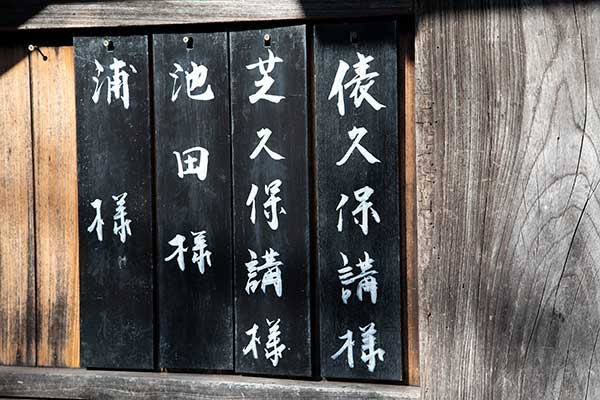 俵久保講様
芝久保講様
池田様
浦様